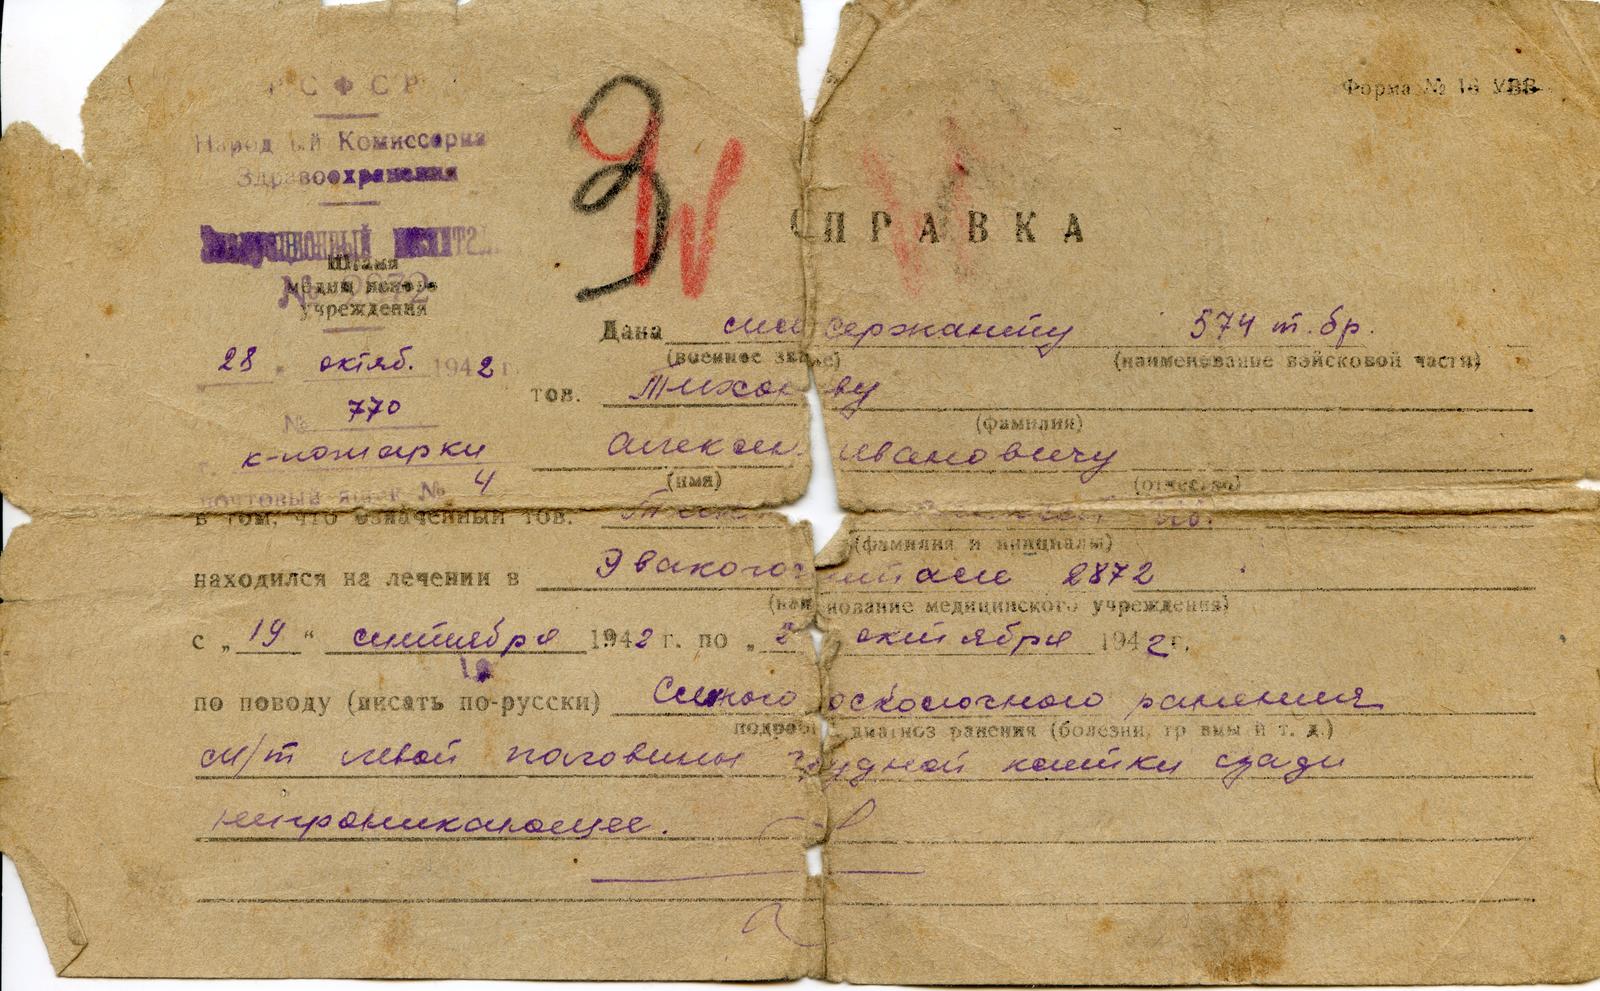 РСФСР
Форма № 16 УВВ
Народный Комиссариа
Здравоохранения
Эвакуационный госпиталь
№ 2872
Штамп
медиц нского
учреждения
СПРАВКА
Дана сержанту 574 т. бр.
(военное зва е) (наименование войсковой части)
28 октяб. 1942 г.
тов. Тихо ву
(фамилия)
№ 770
Алексан Ивановичу
(имя) (отчество)
почтовый ящик № 4
в том, что означенный тов. Тих
(фамилия и инициалы)
находился на лечении в Эвакогоспитале 2872
(наи нование медицинского учреждения)
с „19“ сентября 1942 г. по „2 октября 1942 г.
по поводу (писать по-русски) осколочного ранения
подроб диагноз ранения (болезни, тр вмы и т. д.)
м/т левой половины грудной клетки сзади
непроникающее.